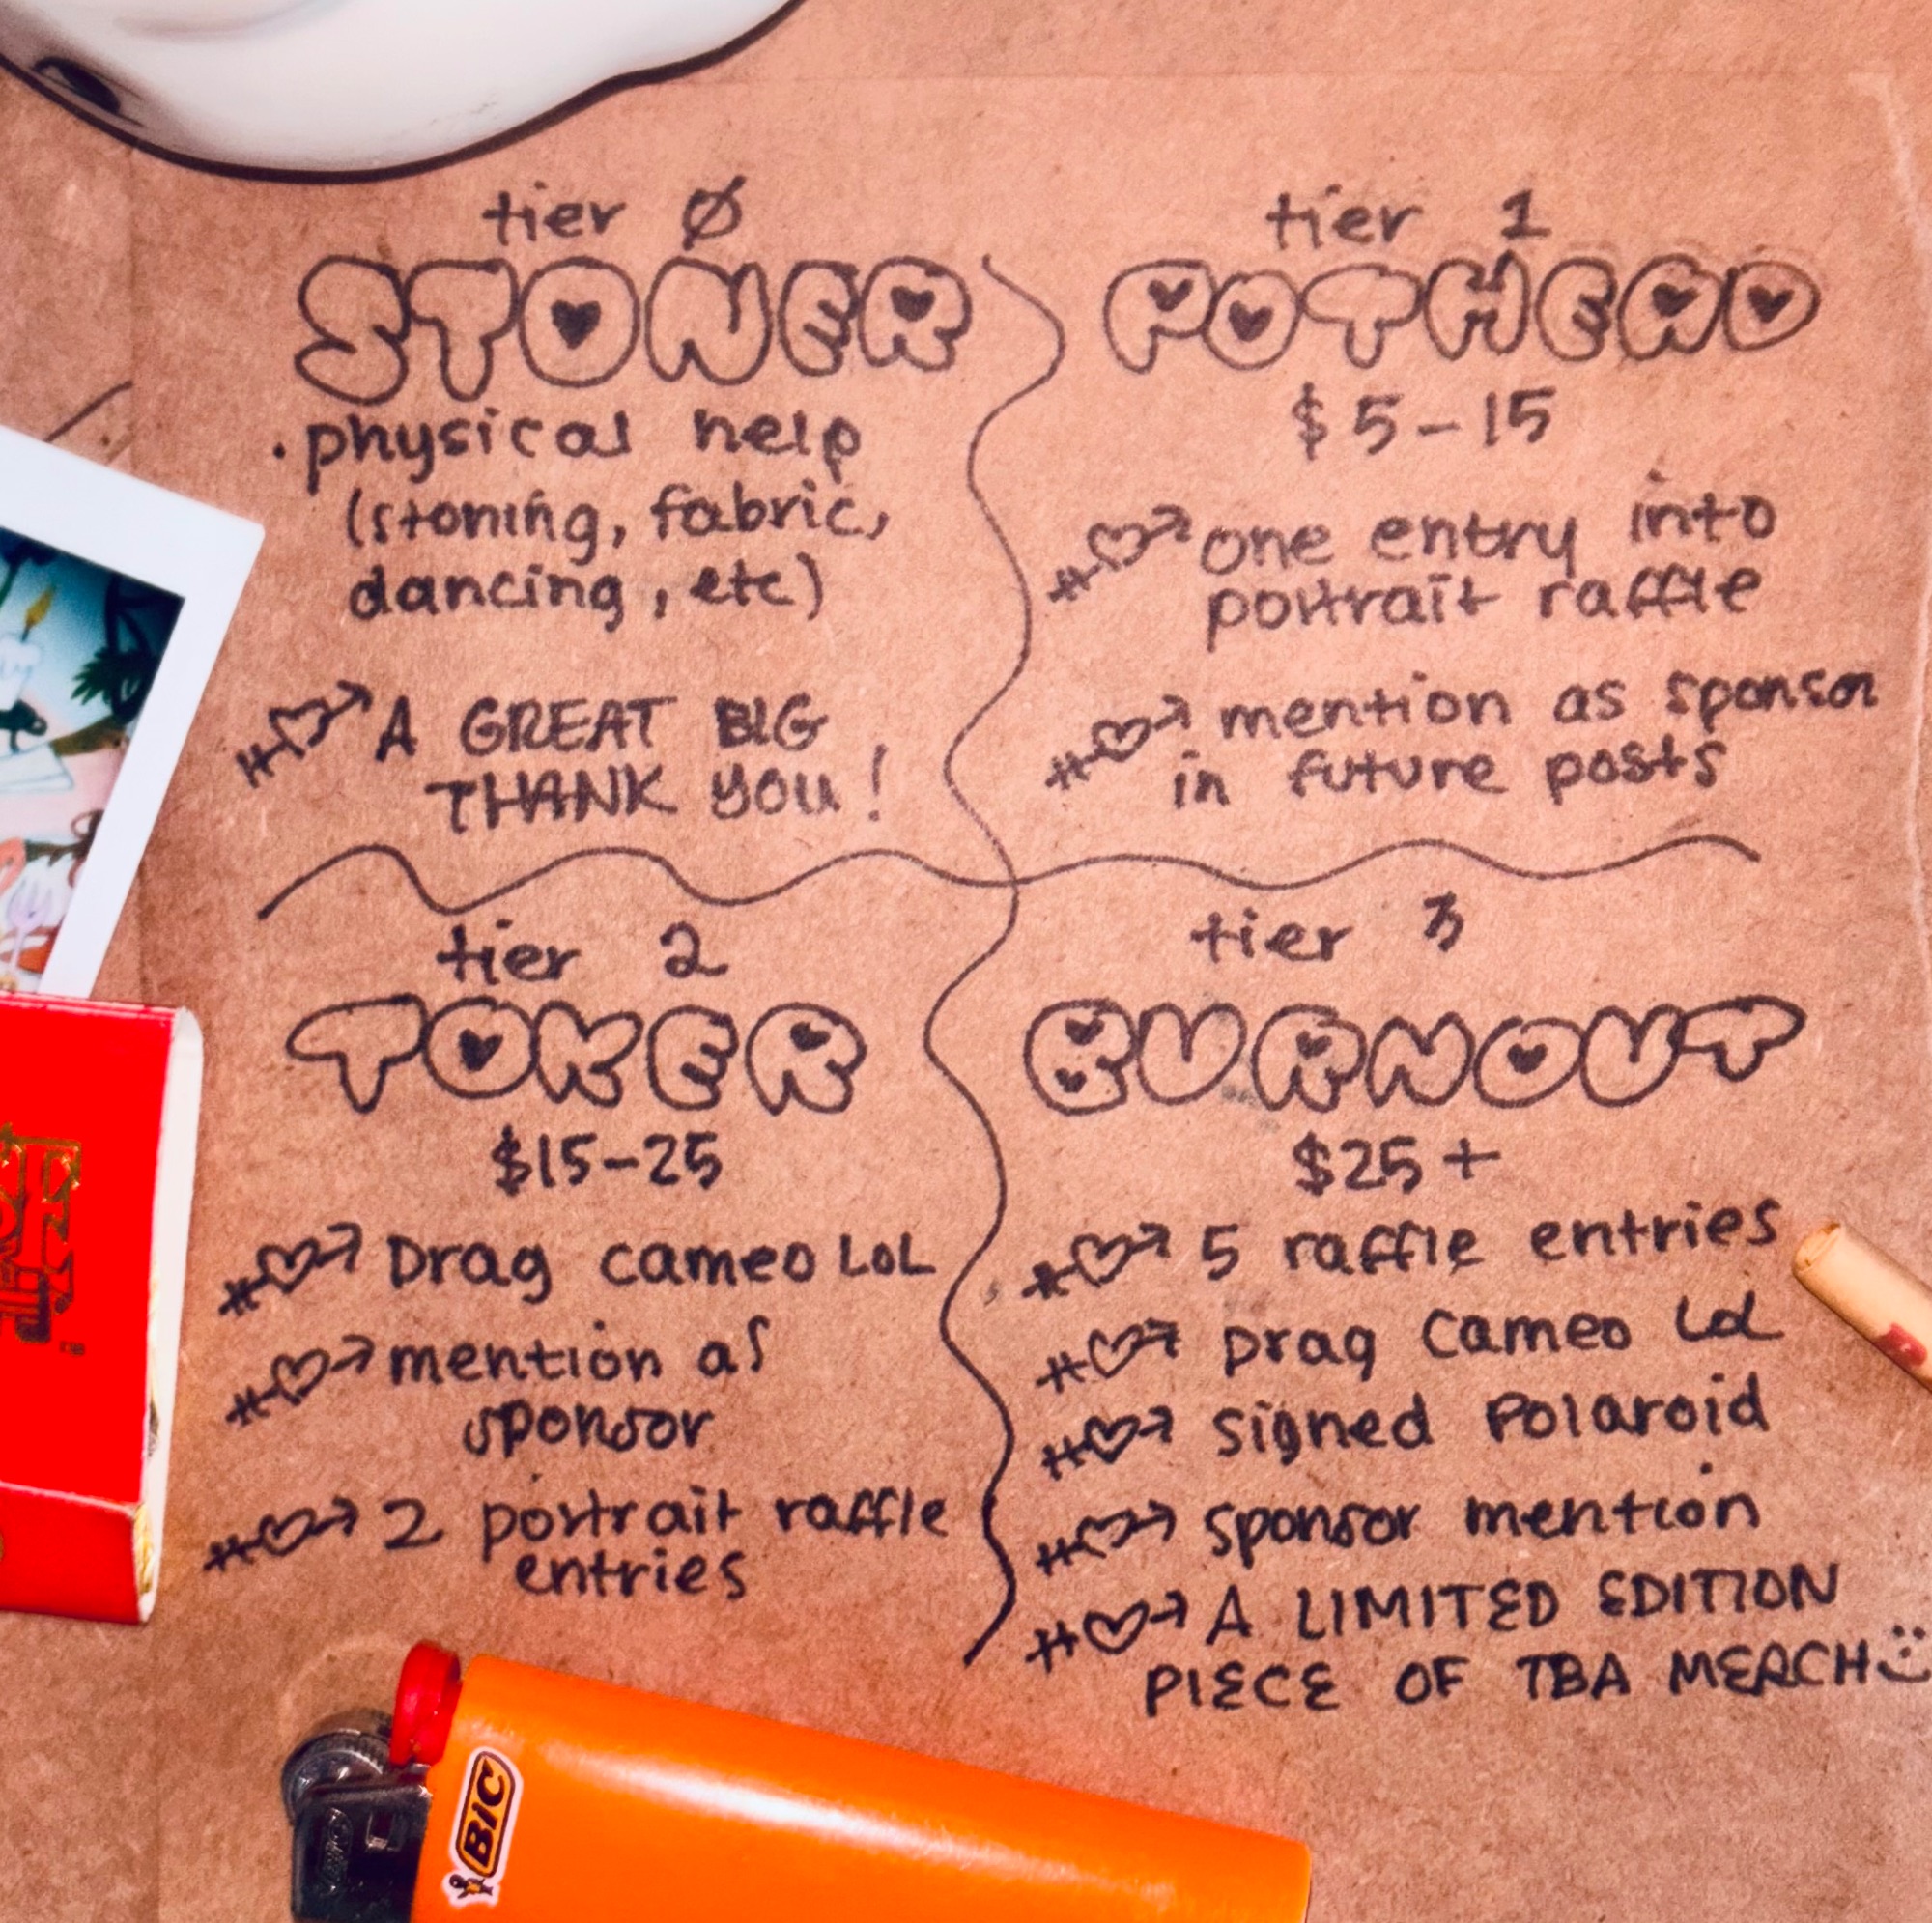 tier 0
STONER
• physical help
(stoning, fabric,
dancing, etc)
A GREAT BIG
THANK YOU!
tier 1
POTHEAD
$5-15
one entry into
portrait raffle
mention as sponsor
in future posts
tier 2
TOKER
$15-25
Drag cameo LOL
mention as
sponsor
2 portrait raffle
entries
tier 3
BURNOUT
$25+
5 raffle entries
Drag cameo LOL
signed Polaroid
sponsor mention
A LIMITED EDITION
PIECE OF TBA MERCH :)
BIC